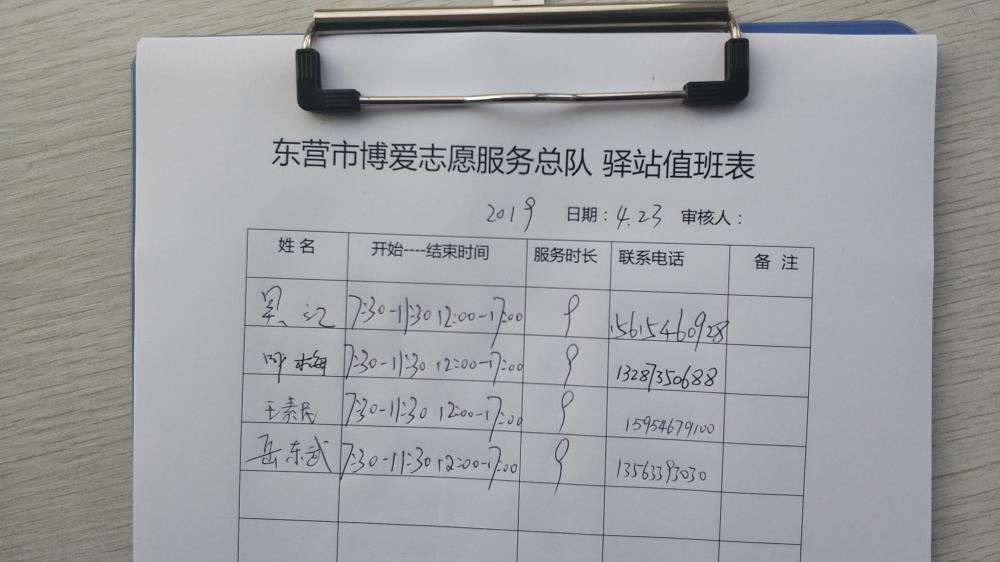 东营市博爱志愿服务总队 驿站值班表
2019 日期：4.23 审核人：
姓名 开始----结束时间 服务时长 联系电话 备注
7:30-11:30 12:00-17:00 9 15615460928
梅 7:30-11:30 12:00-17:00 9 13287350688
王素民 7:30-11:30 12:00-17:00 9 15954679100
岳东武 7:30-11:30 12:00-17:00 9 13563393030